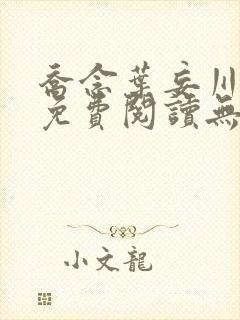 喬念葉妄川
免費閱讀無
小文龍